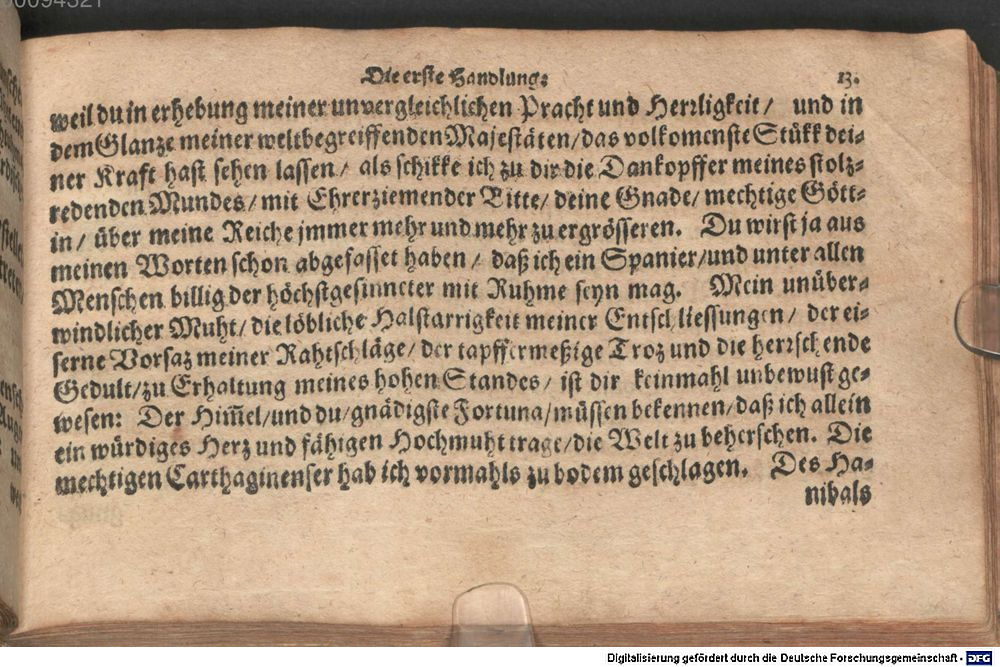 Die erste Handlung: 13.
weil du in erhebung meiner unvergleichlichen Pracht und Herrligkeit / und in
dem Glanze meiner weltbegreiffenden Majestäten / das volkomenste Stükk dei-
ner Kraft hast sehen lassen / als schikke ich zu dir die Dankopffer meines stolz-
redenden Mundes / mit Ehrerziemender Bitte / deine Gnade / mechtige Gött-
in / über meine Reiche jmmer mehr und mehr zu ergrösseren. Du wirst ja aus
meinen Worten schon abgefasset haben / daß ich ein Spanier / und unter allen
Menschen billig der höchstgesinneter mit Ruhme seyn mag. Mein unüber-
windlicher Muht / die löbliche Halstarrigkeit meiner Entschliessungen / der ei-
serne Vorsaz meiner Rahtschläge / der tapffermeßige Troz und die herrschende
Gedult / zu Erhaltung meines hohen Standes / ist dir keinmahl unbewust ge-
wesen: Der Him̃el / und du / gnädigste Fortuna / müssen bekennen / daß ich allein
ein würdiges Herz und fähigen Hochmuht trage / die Welt zu beherschen. Die
mechtigen Carthaginenser hab ich vormahls zu bodem geschlagen. Des Ha-
nibals
Digitalisierung gefördert durch die Deutsche Forschungsgemeinschaft - DFG